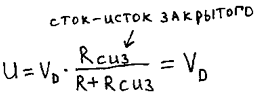 сток-исток закрытого
U = V_D · R_СИЗ / (R + R_СИЗ) = V_D